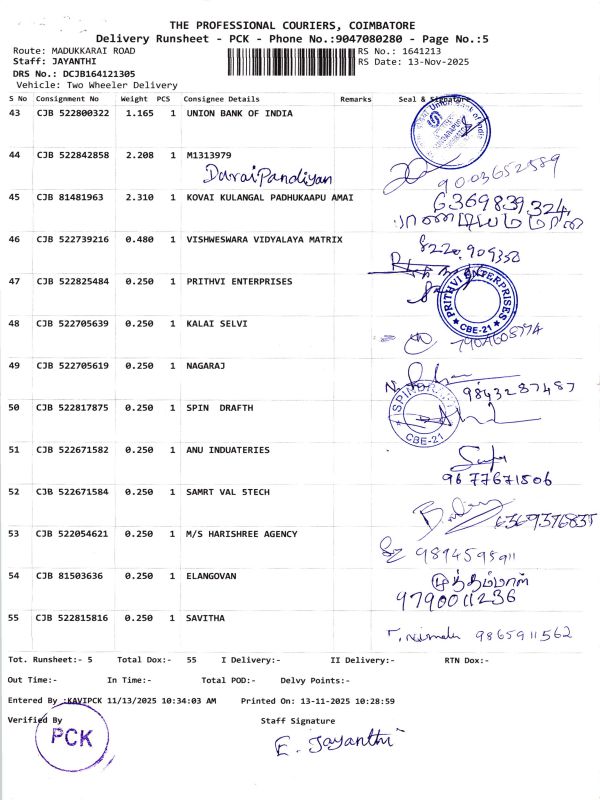 THE PROFESSIONAL COURIERS, COIMBATORE
Delivery Runsheet - PCK - Phone No.:9047080280 - Page No.:5
Route: MADUKKARAI ROAD
RS No.: 1641213
Staff: JAYANTHI
RS Date: 13-Nov-2025
DRS No.: DCJB164121305
Vehicle: Two Wheeler Delivery
S No Consignment No Weight PCS Consignee Details Remarks Seal & Signature
43 CJB 522800322 1.165 1 UNION BANK OF INDIA
Union Bank of India
44 CJB 522842858 2.208 1 M1313979
DuraiPandiyan
9003652589
45 CJB 81481963 2.310 1 KOVAI KULANGAL PADHUKAAPU AMAI
6369839324
46 CJB 522739216 0.480 1 VISHWESWARA VIDYALAYA MATRIX
8220909350
47 CJB 522825484 0.250 1 PRITHVI ENTERPRISES
PRITHVI ENTERPRISES
CBE-21
48 CJB 522705639 0.250 1 KALAI SELVI
49 CJB 522705619 0.250 1 NAGARAJ
9843287487
50 CJB 522817875 0.250 1 SPIN DRAFTH
CBE-21
51 CJB 522671582 0.250 1 ANU INDUATERIES
9677671506
52 CJB 522671584 0.250 1 SAMRT VAL STECH
6369376835
53 CJB 522054621 0.250 1 M/S HARISHREE AGENCY
9894595911
54 CJB 81503636 0.250 1 ELANGOVAN
முத்தம்மாள்
9790011236
55 CJB 522815816 0.250 1 SAVITHA
T. Nirmala 9865911562
Tot. Runsheet:- 5 Total Dox:- 55 I Delivery:- II Delivery:- RTN Dox:-
Out Time:- In Time:- Total POD:- Delvy Points:-
Entered By :KAVIPCK 11/13/2025 10:34:03 AM Printed On: 13-11-2025 10:28:59
Verified By
Staff Signature
PCK
E. Jayanthi